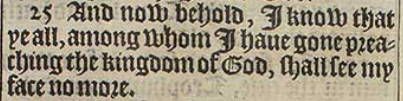 25 And now behold, I know that
ye all, among whom I haue gone prea-
ching the kingdom of God, shall see my
face no more.